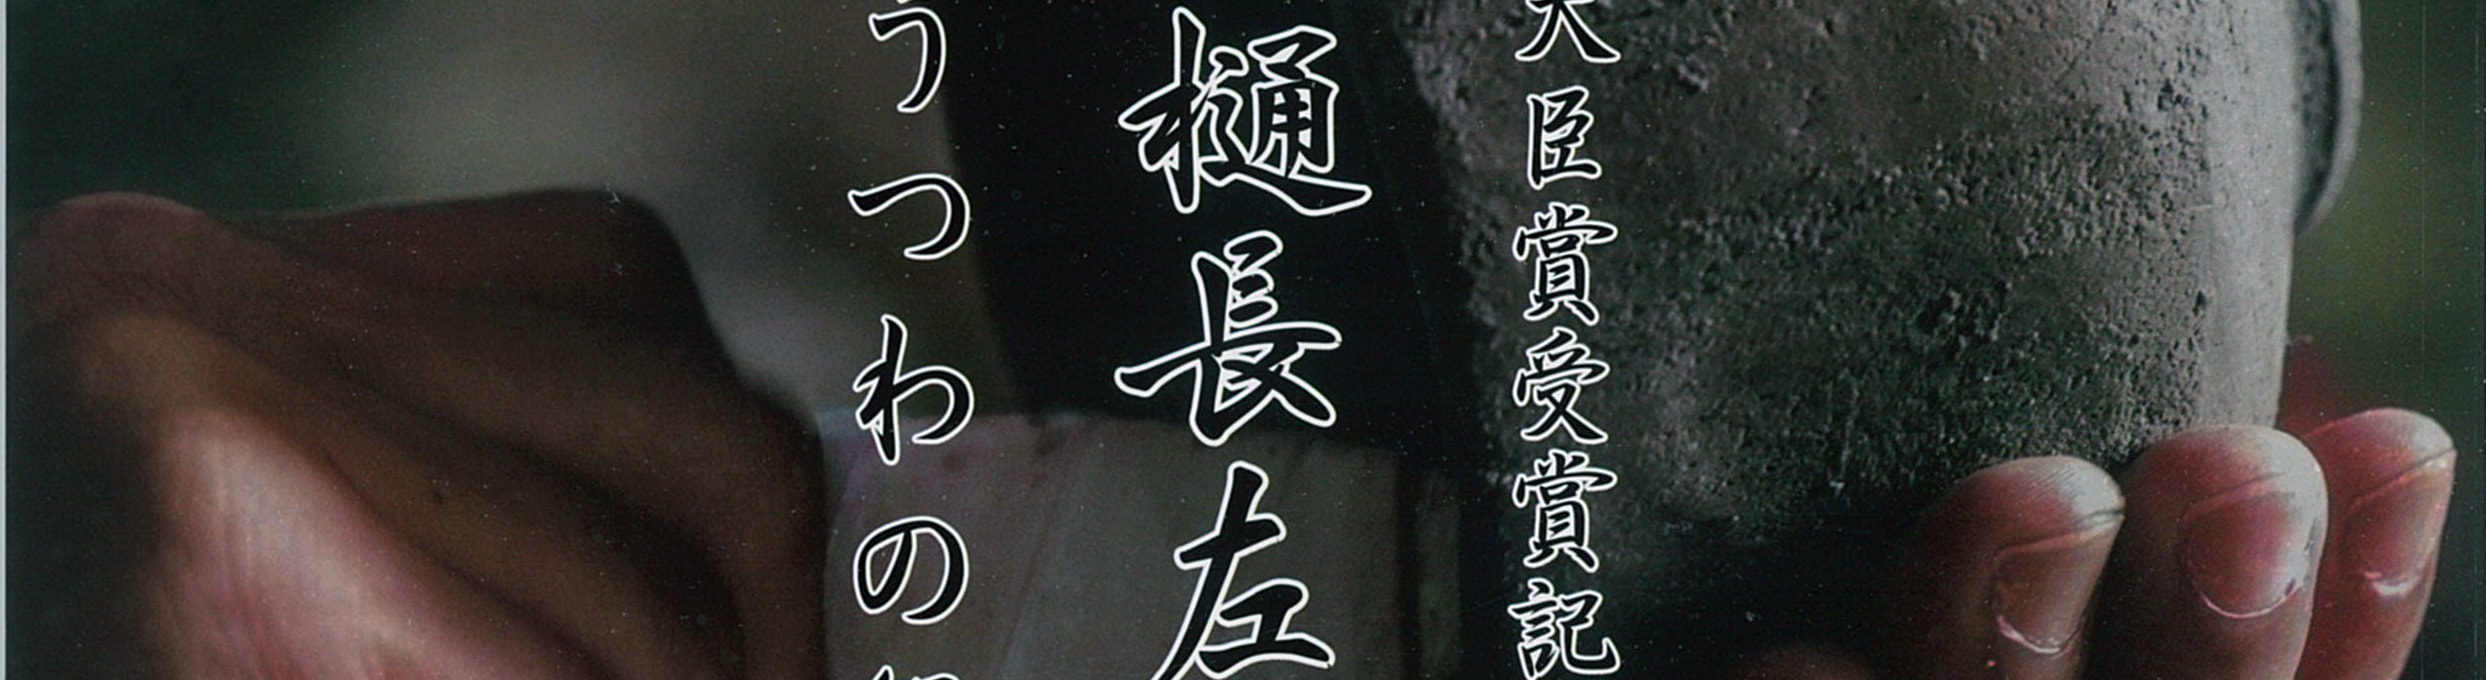 大臣賞受賞記
樋長左
うつわの